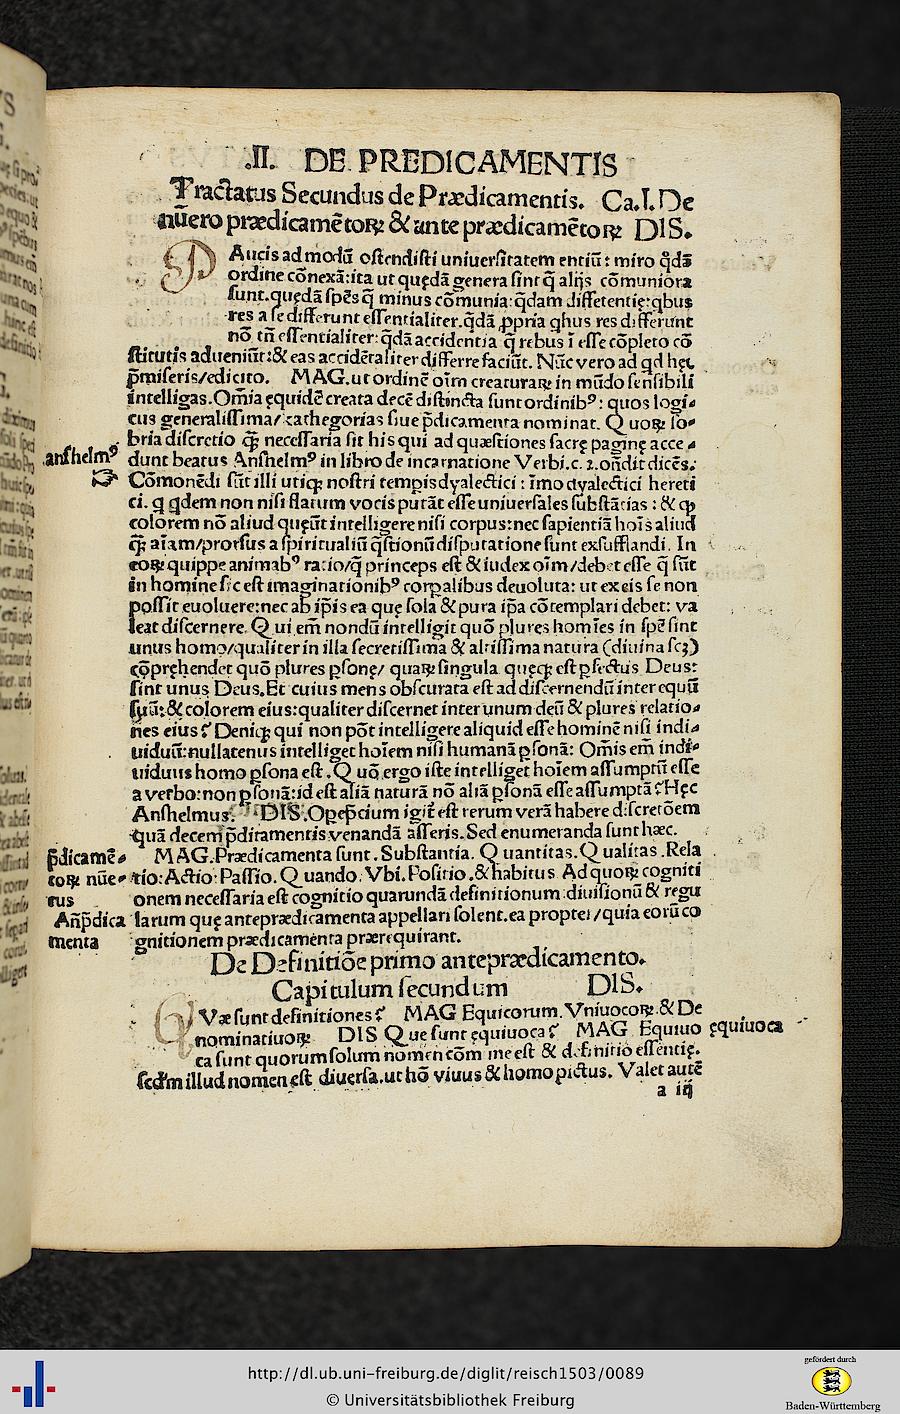 .II. DE PREDICAMENTIS
Tractatus Secundus de Prædicamentis. Ca.I. De
nūero prædicamētoꝝ & ante prædicamētoꝝ DIS.
PAucis ad modū ostendisti uniuersitatem entiū: miro q̄dā
ordine cōnexā: ita ut quędā genera sint q̄ alijs cōmuniora
sunt. quędā spēs q̄ minus cōmunia: q̄dam differentię: qbus
res a se differunt essentialiter. q̄dā ꝓpria qbus res differunt
nō tn̄ essentialiter: q̄dā accidentia q̄ rebus ī esse cōpleto cō
stitutis adueniūt: & eas accidētaliter differre faciūt. Nūc vero ad qd hęc
p̄miseris/edicito. MAG. ut ordinē oīm creaturaꝝ in mūdo sensibili
intelligas. Omīa ęquidē creata decē distincta sunt ordinibꝰ: quos logi⸗
cus generalissima/cathegorias siue p̄dicamenta nominat. Q uoꝝ so⸗
bria discretio ꝙ̄ necessaria sit his qui ad quæstiones sacrę paginę acce⸗
anshelmꝰ
dunt beatus Anshelmꝰ in libro de incarnatione Verbi. c. 2. on̄dit dicēs.
☞ Cōmonēdi sūt illi utiqꝫ nostri tempis dyalectici: īmo dyalectici hereti
ci. q qdem non nisi flatum vocis putāt esse uniuersales substātias: & ꝙ
colorem nō aliud quęūt intelligere nisi corpus: nec sapientiā hoīs aliud
ꝙ̄ aīam/prorsus a spiritualiū q̄stionū disputatione sunt exsufflandi. In
eoꝝ quippe animabꝰ ratio/q̄ princeps est & iudex oīm/debet esse q̄ sūt
in homine sic est imaginationibꝰ corpalibus deuoluta: ut ex eis se non
possit euoluere: nec ab ip̄is ea quę sola & pura ip̄a cōtemplari debet: va
leat discernere. Q ui em̄ nondū intelligit quō plures homīes in spē sint
unus homo/qualiter in illa secretissima & altissima natura (diuina scꝫ)
cōpręhendet quō plures ꝑsonę/ quaꝝ singula quęqꝫ est ꝑfectus Deus:
sint unus Deus. Et cuius mens obscurata est ad discernendū inter equū
suū: & colorem eius: qualiter discernet inter unum deū & plures relatio⸗
nes eius? Deniqꝫ qui non pōt intelligere aliquid esse hominē nisi indi⸗
uiduū: nullatenus intelliget hoīem nisi humanā ꝑsonā: Omīs em̄ indi⸗
uiduus homo ꝑsona est. Q uō ergo iste intelliget hoīem assumptū esse
a verbo: non ꝑsonā: id est aliā naturā nō aliā ꝑsonā esse assumptā? Hęc
Anshelmus. DIS. Opep̄cium igit̄ est rerum verā habere discretōem
quā decem p̄dicamentis venandā asseris. Sed enumeranda sunt hæc.
p̄dicamē⸗
toꝝ nūe⸗
rus
An̄p̄dica
menta
MAG. Prædicamenta sunt. Substantia. Q uantitas. Q ualitas. Rela
tio: Actio: Passio. Q uando. Vbi. Positio. & habitus Ad quoꝝ cogniti
onem necessaria est cognitio quarundā definitionum: diuisionū & regu
larum quę anteprædicamenta appellari solent. ea propter/quia eorū co
gnitionem prædicamenta prærequirant.
De Definitiōe primo anteprædicamento.
Capitulum secundum DIS.
QVæ sunt definitiones? MAG Equicorum. Vniuocoꝝ. & De
nominatiuoꝝ DIS Q ue sunt ęquiuoca? MAG Equiuo
ęquiuoca
ca sunt quorum solum nomen cōmune est & definitio essentię.
scdm illud nomen est diuersa. ut hō viuus & homo pictus. Valet autē
a iij
http://dl.ub.uni-freiburg.de/diglit/reisch1503/0089
© Universitätsbibliothek Freiburg
gefördert durch
Baden-Württemberg